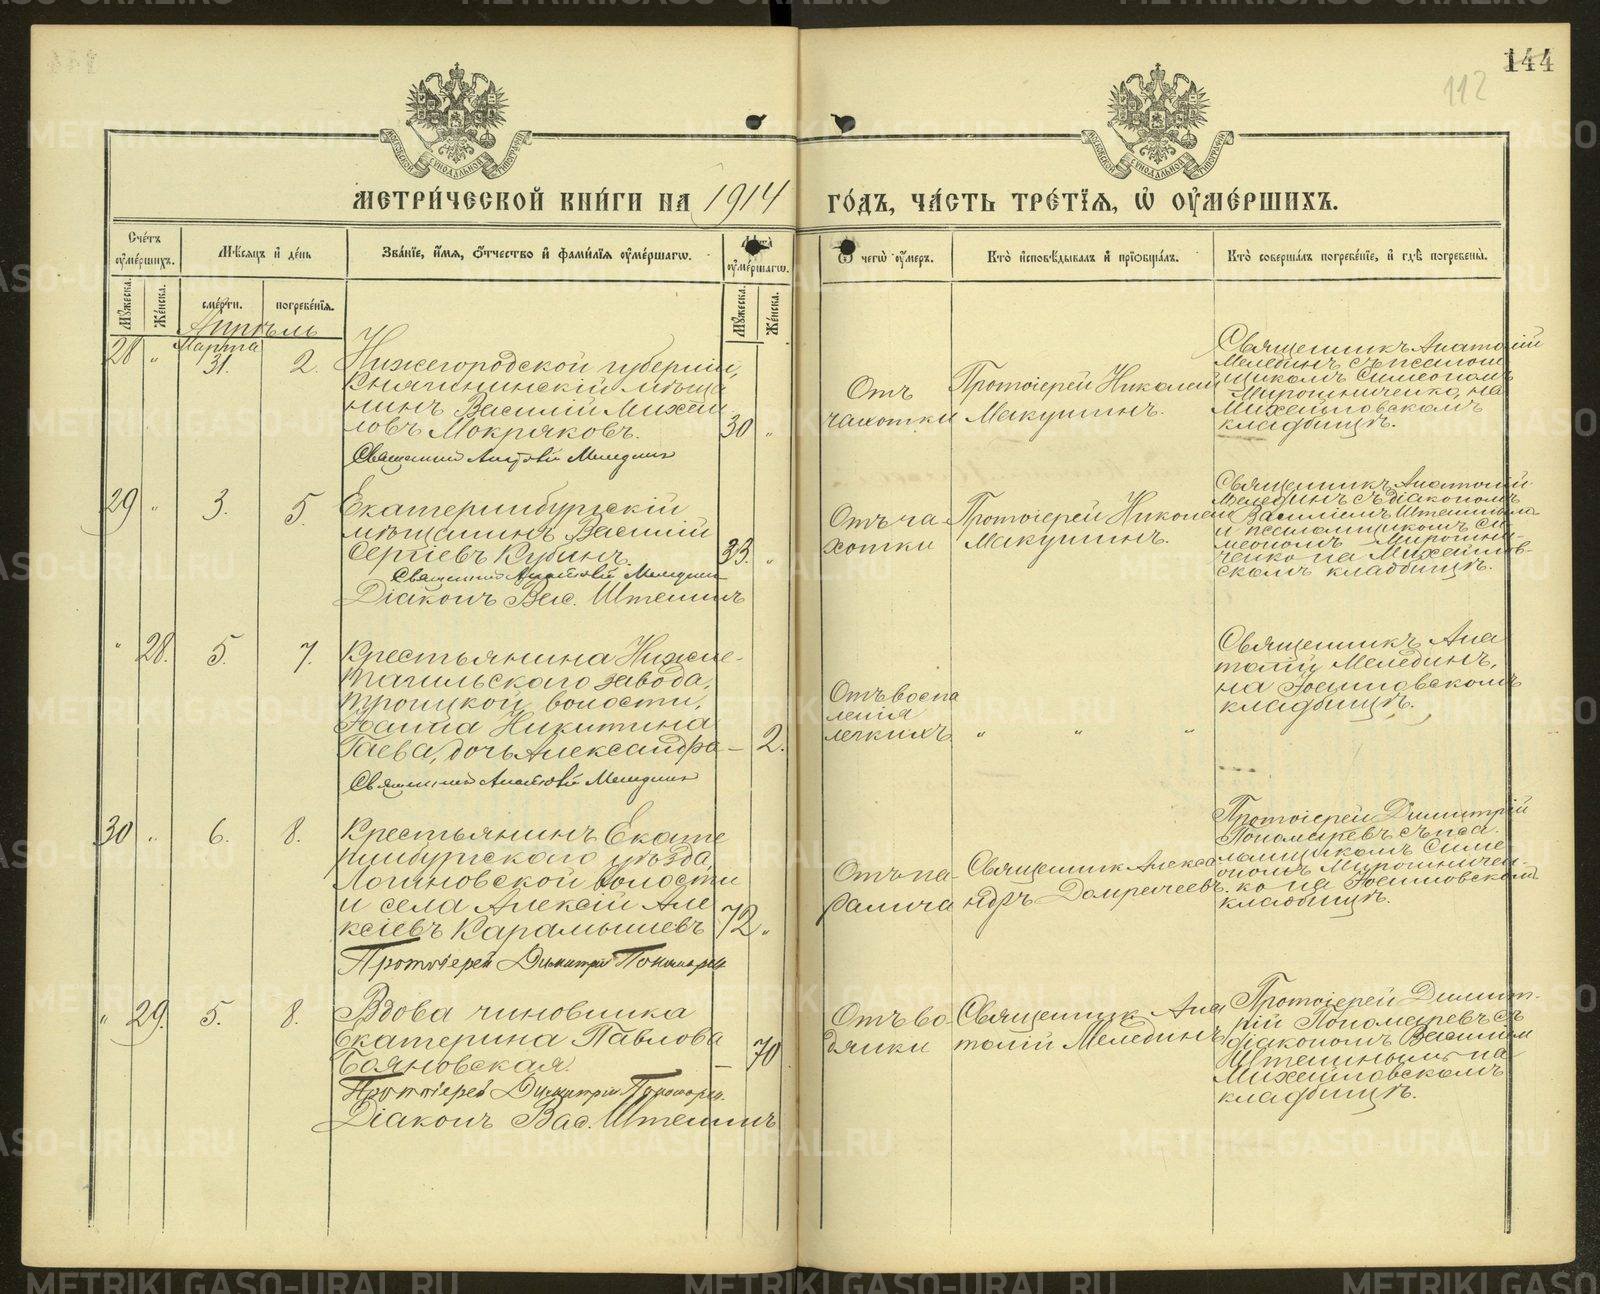 144
112
МОСКОВСКОЙ СѴНОДАЛЬНОЙ ТИПОГРАФІИ
МОСКОВСКОЙ СѴНОДАЛЬНОЙ ТИПОГРАФІИ
МЕТРИ́ЧЕСКОЙ КНИ́ГИ НА 1914 ГО́ДЪ, ЧА́СТЬ ТРЕ́ТЇѦ, Ѡ҆ ОУ҆МЕ́РШИХЪ.
Сче́тъ оу҆ме́ршихъ.
Мѣ́сѧцъ и҆ де́нь
Зва́нїе, и҆́мѧ, ѻ҆́тчество и҆ фами́лїѧ оу҆ме́ршагѡ.
Лѣ́та оу҆ме́ршагѡ.
Ѿ чегѡ̀ оу҆́меръ.
Кто̀ и҆сповѣ́дывалъ и҆ прїѡбща́лъ.
Кто̀ соверша́лъ погребе́нїе, и҆ гдѣ̀ погребены̀.
Мꙋ́жеска. Же́нска.
сме́рти. погребе́нїѧ.
Мꙋ́жеска. Же́нска.
Апрѣль
28 " Марта 31. 2.
Нижегородской губерніи,
Княгининскій мѣща
нинъ Василій Михай
ловъ Мокряковъ. 30 "
Священникъ Анатолій Мелединъ
Отъ
чахотки
Протоіерей Николай
Макушинъ.
Священникъ Анатолій
Мелединъ съ псалом
щикомъ Симеономъ
Мирошниченко, на
Михайловскомъ
кладбищѣ.
29 " 3. 5.
Екатеринбургскій
мѣщанинъ Василій
Сергіевъ Кубинъ. 33. "
Священникъ Анатолій Мелединъ
Діаконъ Вас. Штеминъ
Отъ ча
хотки
Протоіерей Николай
Макушинъ.
Священникъ Анатолій
Мелединъ съ діакономъ
Василіемъ Штеминымъ
и псаломщикомъ Си
меономъ Мирошни-
ченко на Михайлов-
скомъ кладбищѣ.
" 28. 5. 7.
Крестьянина Нижне-
тагильскаго завода,
троицкой волости,
Іоанна Никитина
Гаева, дочь Александра – 2.
Священникъ Анатолій Мелединъ
Отъ воспа
ленія
легкихъ. " " "
Священникъ Ана
толій Мелединъ,
на Іоанновскомъ
кладбищѣ.
30 " 6. 8.
Крестьянинъ Екате
ринбургскаго уѣзда,
Логиновской волости
и села Алексій Але
ксіевъ Карамышевъ 72 "
Протоіерей Димитрій Пономаревъ
Отъ па-
ралича
Священник Алекса
ндръ Домрачеевъ.
Протоіерей Димитрій
Пономаревъ съ пса
ломщикомъ Симе
ономъ Мирошничен-
ко на Іоанновскомъ
кладбищѣ.
" 29. 5. 8.
Вдова чиновника
Екатерина Павлова
Бояновская. – 70
Протоіерей Димитрій Пономарев.
Діаконъ Вас. Штеминъ
Отъ во-
дянки
Священник Ана
толій Мелединъ
Протоіерей Димит-
рій Пономаревъ съ
діакономъ Василіем
Штеминымъ на
Михайловскомъ
кладбищѣ.
METRIKI.GASO-URAL.RU